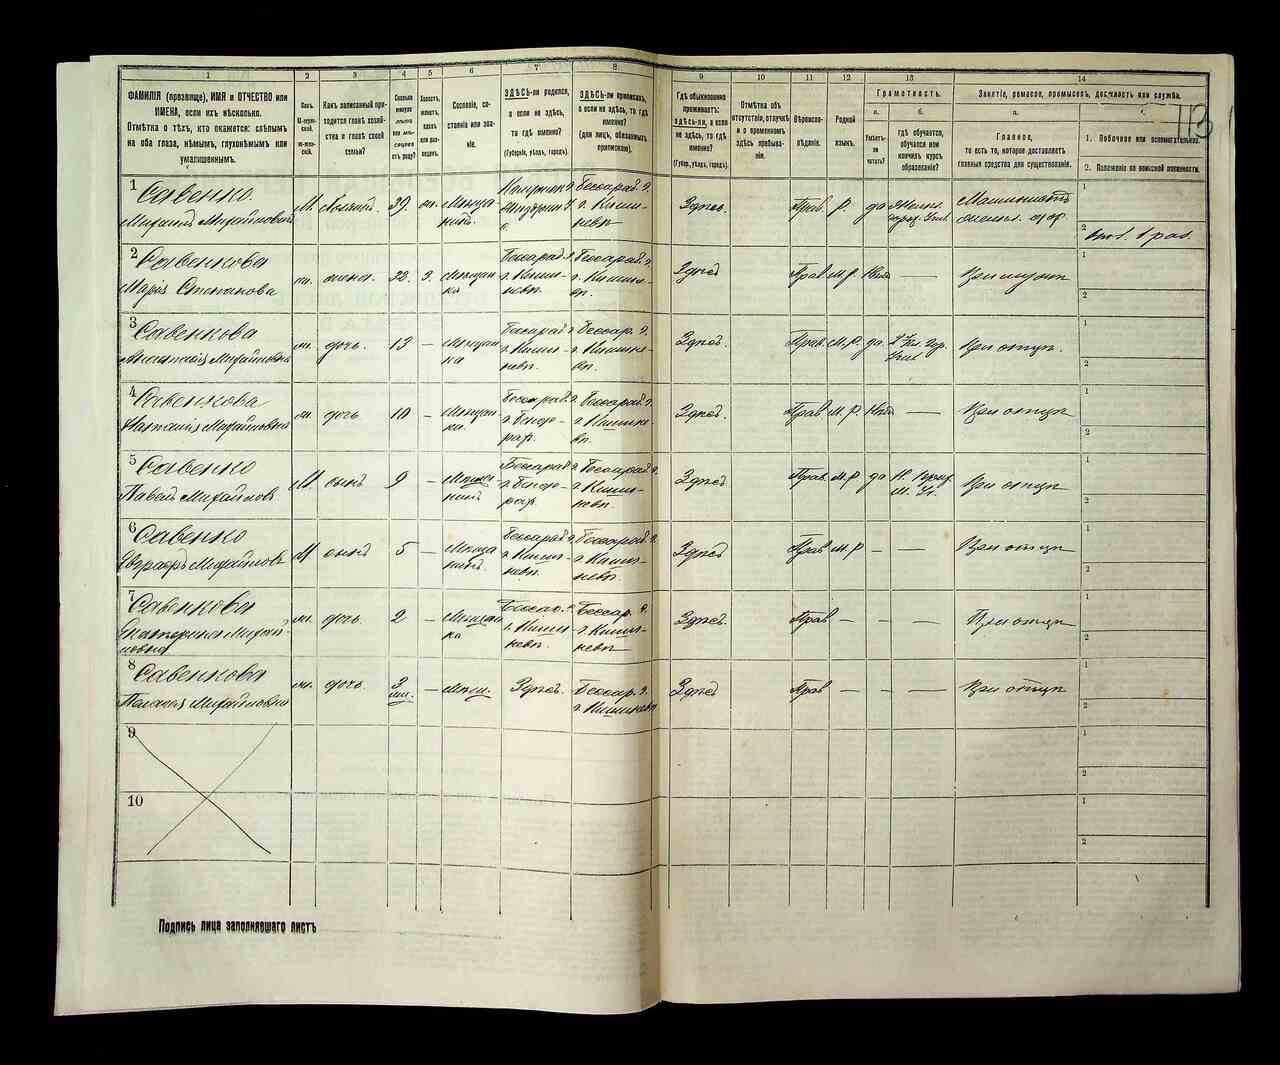 1 2 3 4 5 6 7 8 9 10 11 12 13 14
ФАМИЛІЯ (прозвище), ИМЯ и ОТЧЕСТВО или
ИМЕНА, если ихъ нѣсколько.
Отмѣтка о тѣхъ, кто окажется: слѣпымъ
на оба глаза, нѣмымъ, глухонѣмымъ или
умалишеннымъ.
Полъ.
М-муж-
ской.
Ж-жен-
скій.
Какъ записанный при-
ходится главѣ хозяй-
ства и главѣ своей
семьи?
Сколько
минуло
лѣтъ
или мѣ-
сяцевъ
отъ роду?
Холостъ,
женатъ,
вдовъ
или раз-
веденъ.
Сословіе, со-
стояніе или зва-
ніе.
ЗДѢСЬ-ли родился,
а если не здѣсь,
то гдѣ именно?
(Губернія, уѣздъ, городъ).
ЗДѢСЬ-ли приписанъ,
а если не здѣсь, то гдѣ
именно?
(для лицъ, обязанныхъ
припискою).
Гдѣ обыкновенно
проживаетъ:
здѣсь-ли, а если
не здѣсь, то гдѣ
именно?
(Губер., уѣздъ, городъ).
Отмѣтка объ
отсутствіи, отлучкѣ
и о временномъ
здѣсь пребыва-
ніи.
Вѣроиспо-
вѣданіе.
Родной
языкъ.
Грамотность.
а.
Умѣетъ-
ли
читать?
б.
гдѣ обучается,
обучался или
кончилъ курсъ
образованія?
Занятіе, ремесло, промыселъ, должность или служба.
а.
Главное,
то есть то, которое доставляетъ
главныя средства для существованія.
113
1. Побочное или вспомогательное.
2. Положеніе по воинской повинности.
1 Савенко
Михаилъ Михайловичъ
М. 39 Мѣща-
нинъ.
Бессараб. г.
г. Кишин-
невъ
Здѣсь. Прав. Р. да
Машинистъ
1
2
2 Савенкова
Марія Степановна
ж. жена. 32. Мѣщан
ка
Бессараб. г.
г. Киши-
невъ.
Бессараб. г.
г. Кишин-
Здѣсь Прав М.Р. Нѣтъ —
1
2
3 Савенкова
Анастасія Михайловна
ж. дочь. 13 — Мѣщан
ка
Бессараб. г.
г. Киши-
невъ.
Бессар. г.
г. Кишин-
Здѣсь. Прав. М.Р. да
При отцѣ.
1
2
4 Савенкова
Наталія Михайловна
ж. дочь 10 — Мѣщан-
ка.
Бессараб. г.
Бессараб. г.
г. Кишин-
Здѣсь. Прав М.Р. Нѣтъ —
При отцѣ
1
2
5 Савенко
Михайловъ
М. сынъ 9 — Мѣща-
нинъ
Бессараб. г.
Бессараб. г.
г. Кишин-
невъ.
Здѣсь. Прав. М.Р да
При отцѣ
1
2
6 Савенко
Евграфъ Михайловъ
М сынъ 5 — Мѣща
нинъ.
Бессараб. г.
г. Кишин-
невъ.
Бессараб. г.
г. Кишин-
невъ.
Здѣсь Прав М.Р — —
При отцѣ
1
2
7 Савенкова
Екатерина Михай-
ловна
ж. дочь. 2 — Мѣщан
ка
Бессар. г.
г. Кишин-
невъ.
Бессар. г.
г. Кишин-
невъ
Здѣсь. Прав — — —
При отцѣ
1
2
8 Савенкова
Пелагія Михайловна
ж. дочь. 3
м. — Мѣщ. Здѣсь.
Бессар. г.
г. Кишиневъ
Здѣсь Прав — — —
При отцѣ
1
2
9
1
2
10
1
2
Подпись лица заполнявшаго листъ